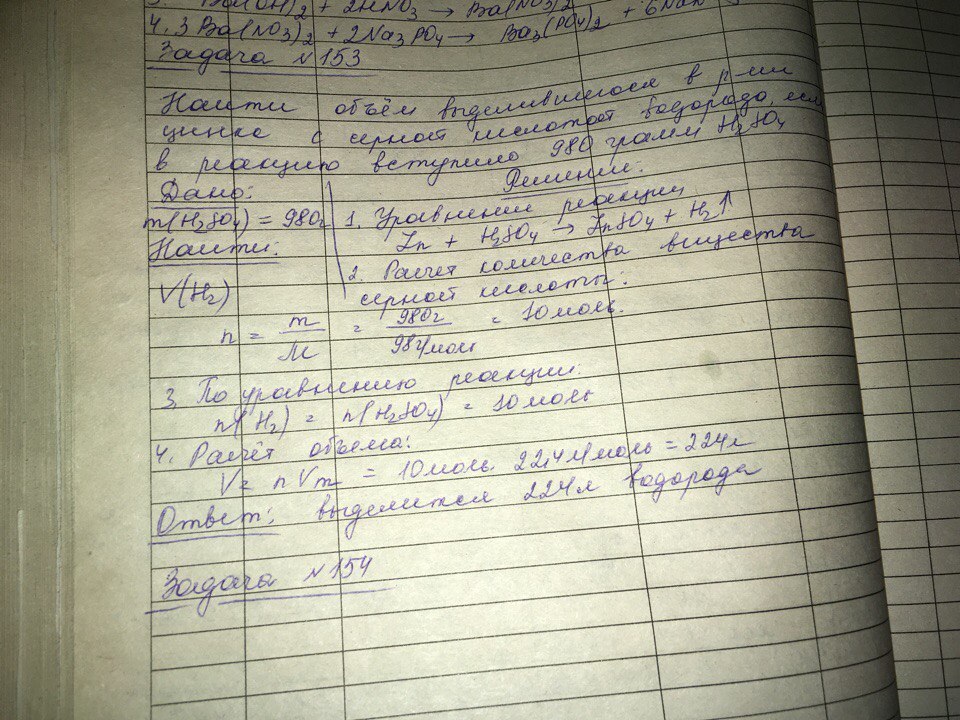 3. Ba(OH)2 + 2HNO3 → Ba(NO3)2
4. 3 Ba(NO3)2 + 2Na3PO4 → Ba3(PO4)2 + 6NaN
Задача №153
Найти объём выделившегося в р-ии
цинка с серной кислотой водорода, если
в реакцию вступило 980 грамм H2SO4
Дано:
Решение:
m(H2SO4) = 980г
1. Уравнение реакции
Найти:
Zn + H2SO4 → ZnSO4 + H2↑
V(H2)
2. Расчёт количества вещества
серной кислоты:
n = m/M = 980г/98г/моль = 10 моль.
3. По уравнению реакции:
n(H2) = n(H2SO4) = 10 моль
4. Расчёт объёма:
V = n Vm = 10 моль · 22,4 л/моль = 224л
Ответ: выделится 224л водорода
Задача №154